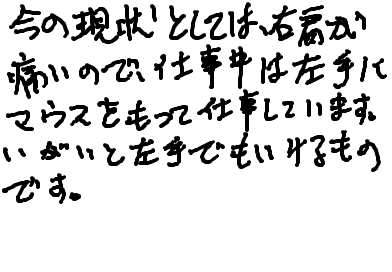 今の現状としては、右肩が
痛いので、仕事中は左手に
マウスをもって仕事しています。
いがいと左手でもいけるもの
です。